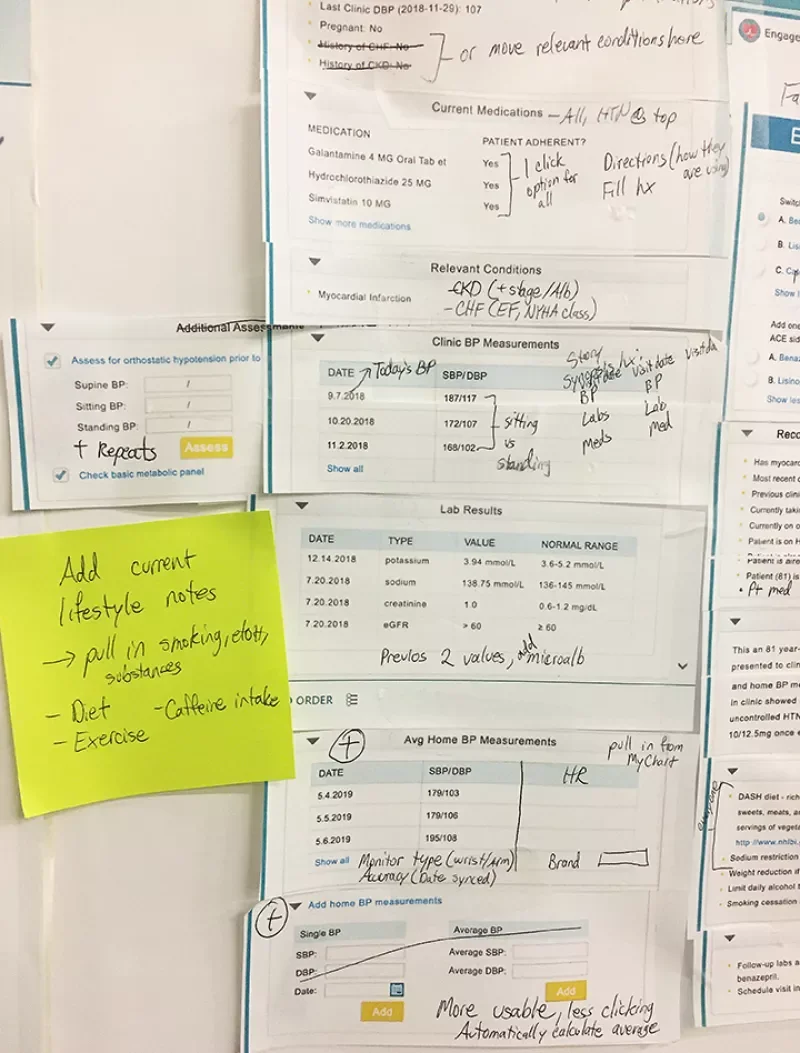 Last Clinic DBP (2018-11-29): 107
Pregnant: No
History of CHF: No
History of CKD: No
or move relevant conditions here
Current Medications - All, HTN @ top
MEDICATION PATIENT ADHERENT?
Galantamine 4 MG Oral Tab et Yes
Hydrochlorothiazide 25 MG Yes
Simvistatin 10 MG Yes
Show more medications
1 click
option for
all
Directions (how they
are using)
Fill hx
Relevant Conditions
Myocardial Infarction
- CKD (+ stage/Alb)
- CHF (EF, NYHA class)
Additional Assessments
Assess for orthostatic hypotension prior to
Supine BP: /
Sitting BP: /
Standing BP: /
+ Repeats
Assess
Check basic metabolic panel
Clinic BP Measurements
DATE SBP/DBP
Today's BP
9.7.2018 187/117
10.20.2018 172/107
11.2.2018 168/102
Show all
sitting
vs
standing
Story
Synopsis hx:
visit date
BP BP
Labs Lab
Meds med
Add current
lifestyle notes
→ pull in smoking, etoh,
substances
- Diet - Caffeine intake
- Exercise
Lab Results
DATE TYPE VALUE NORMAL RANGE
12.14.2018 potassium 3.94 mmol/L 3.6-5.2 mmol/L
7.20.2018 sodium 138.75 mmol/L 136-145 mmol/L
7.20.2018 creatinine 1.0 0.6-1.2 mg/dL
7.20.2018 eGFR > 60 ≥ 60
Previos 2 values, add microalb
ORDER
+ Avg Home BP Measurements
pull in from
MyChart
DATE SBP/DBP HR
5.4.2019 179/103
5.5.2019 179/106
5.6.2019 195/108
Show all
Monitor type (wrist/Arm) Brand
Accuracy (Date synced)
+ Add home BP measurements
Single BP Average BP
SBP: Average SBP:
DBP: Average DBP:
Date:
Add Add
More usable, less clicking
Automatically calculate average
Engage
Fa
E
Switc
A. Be
B. Lis
C. Ca
Show l
Add one
ACE sid
A. Bena
B. Lisino
Show les
Reco
Has myocard
Most recent c
Previous clini
Currently taki
Currently on o
Patient is on H
Patient is alre
Patient (81) is
• Pt med
This an 81 year-
presented to clin
and home BP me
In clinic showed
uncontrolled HTN
10/12.5mg once e
everyone
DASH diet - rich
sweets, meats, a
servings of vegeta
http://www.nhlbi.
Sodium restriction
Weight reduction if
Limit daily alcohol t
Smoking cessation
Follow-up labs a
benazepril.
Schedule visit in